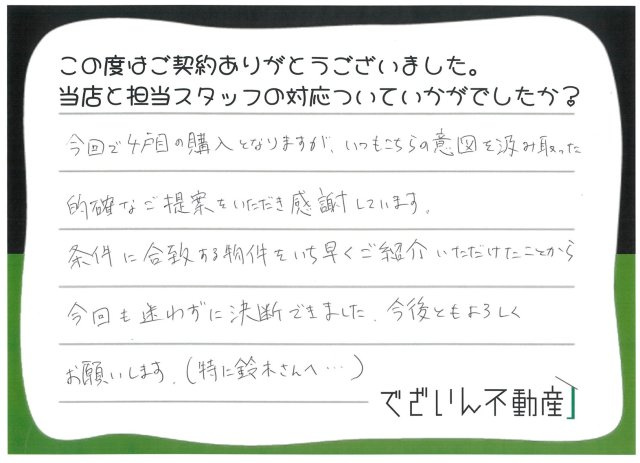 この度はご契約ありがとうございました。
当店と担当スタッフの対応ついていかがでしたか？
今回で4戸目の購入となりますが、いつもこちらの意図を汲み取った
的確なご提案をいただき感謝しています。
条件に合致する物件をいち早くご紹介いただけたことから
今回も迷わずに決断できました。今後ともよろしく
お願いします。(特に鈴木さんへ…)
でざいん不動産